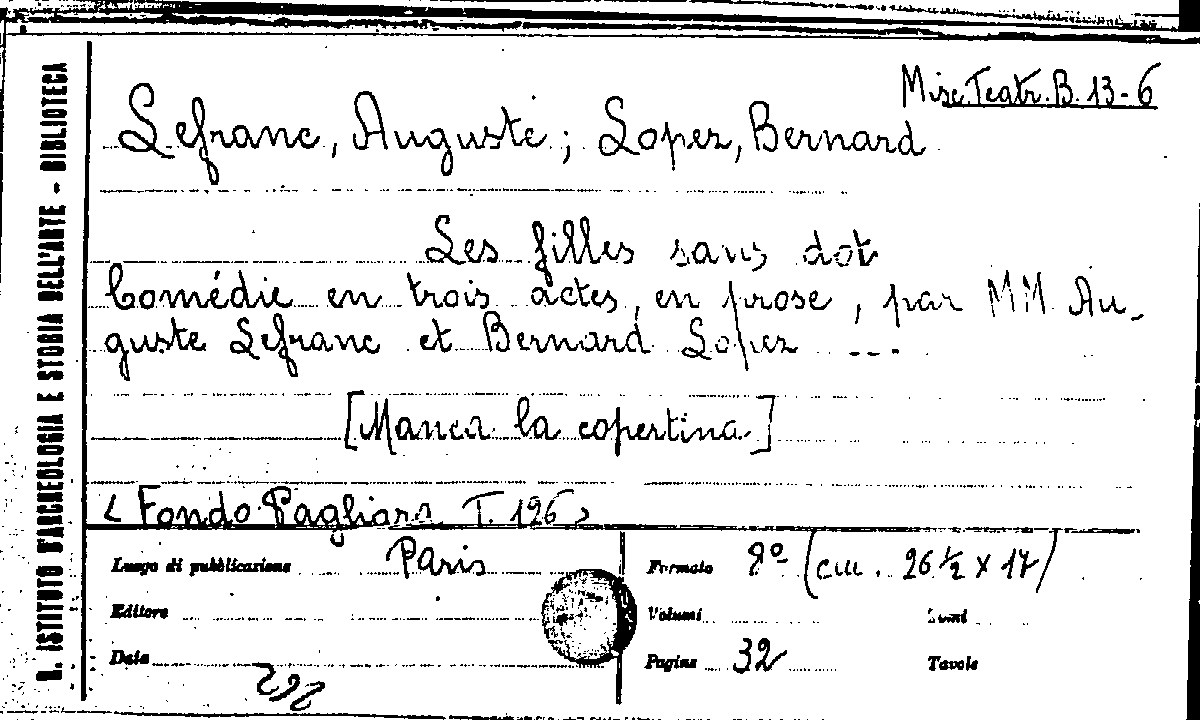 Misc.Teatr.B. 13-6
Lefranc, Auguste ; Lopez, Bernard
Les filles sans dot
Comédie en trois actes, en prose, par MM Au-
guste Lefranc et Bernard Lopez ---
[Manca la copertina.]
< Fondo Pagliara T. 126 >
R. ISTITUTO D'ARCHEOLOGIA E STORIA DELL'ARTE - BIBLIOTECA
Luogo di pubblicazione Paris
Formato 8º (cm. 26 ½ x 17)
Editore
Volumi
Data
Pagine 32
Tavole